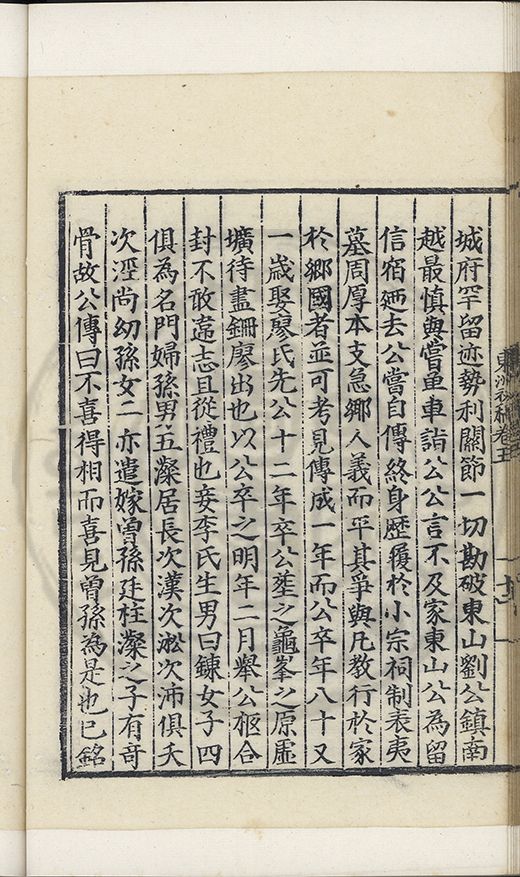 東洲初稿卷五
城府罕留迹勢利關節一切勘破東山劉公鎮南
越最慎與嘗單車詣公公言不及家東山公為留
信宿廼去公嘗自傳終身歷履於小宗祠制表夷
墓周厚本支急鄉人義而平其爭與凡教行於家
於鄉國者並可考見傳成一年而公卒年八十又
一歲娶廖氏先公十二年卒公塟之龜峯之原虛
壙待盡鈿廖出也以公卒之明年二月舉公柩合
封不敢違志且從禮也妾李氏生男曰鍊女子四
俱為名門婦孫男五澯居長次漢次淞次沛俱夭
次涇尚幼孫女二亦遣嫁曾孫廷柱澯之子有奇
骨故公傳曰不喜得相而喜見曾孫為是也已銘